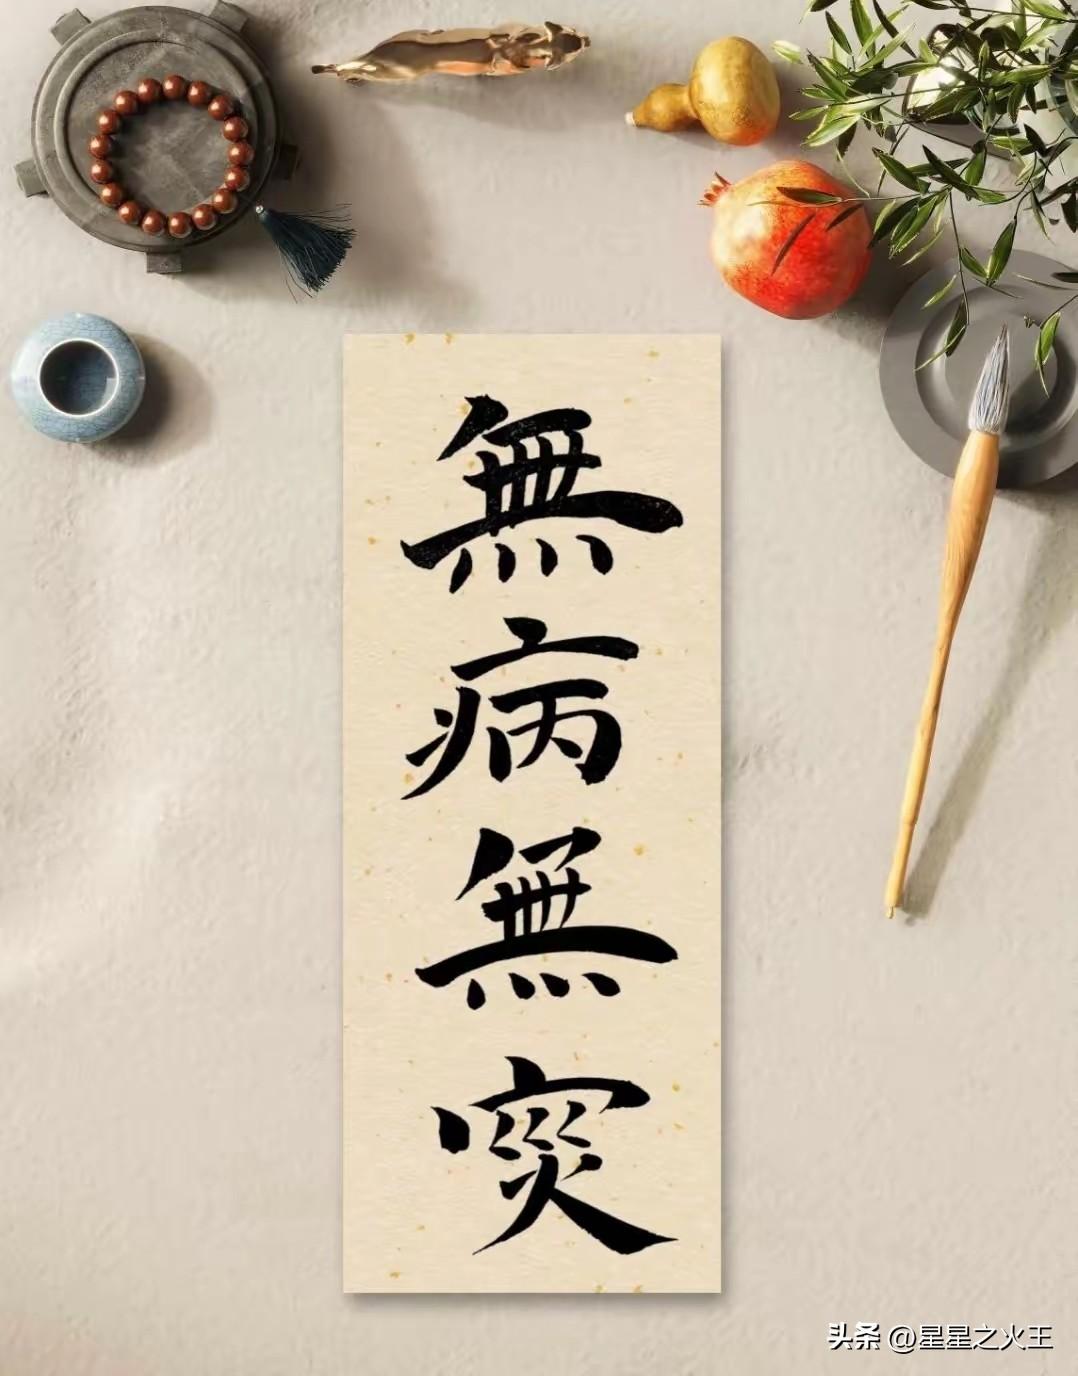 無病無災
头条 @星星之火王